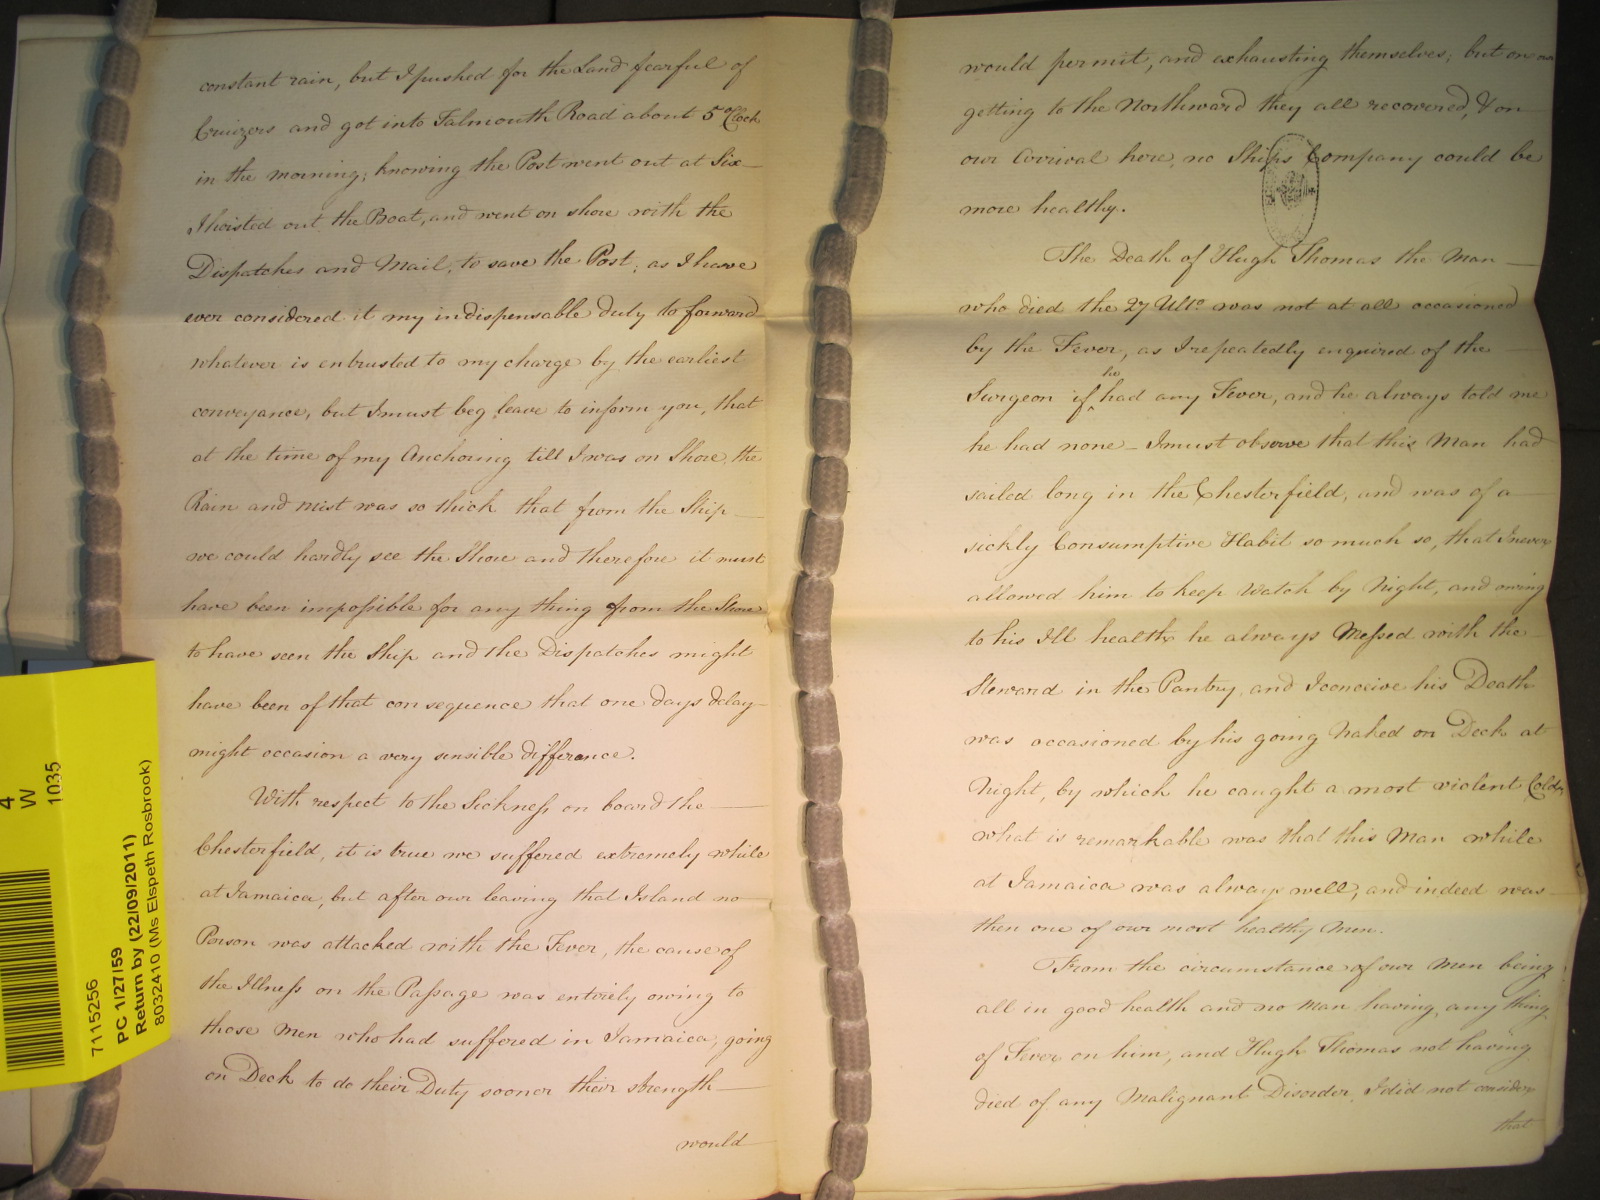 constant rain, but I pushed for the Land fearful of
Cruizers and got into Falmouth Road about 5 oClock
in the morning; knowing the Post went out at Six
I hoisted out the Boat, and went on shore with the
Dispatches and Mail, to save the Post; as I have
ever considered it my indispensable duty to forward
whatever is entrusted to my charge by the earliest
conveyance, but I must beg leave to inform you, that
at the time of my Anchoring till I was on Shore, the
Rain and mist was so thick that from the Ship
we could hardly see the Shore and therefore it must
have been impossible for any thing from the Shore
to have seen the Ship and the Dispatches might
have been of that consequence that one days delay
might occasion a very sensible difference.
With respect to the Sickness on board the
Chesterfield, it is true we suffered extremely while
at Jamaica, but after our leaving that Island no
Person was attacked with the Fever, the cause of
the Illness on the Passage was entirely owing to
those Men who had suffered in Jamaica, going
on Deck to do their Duty sooner their strength
would
would permit, and exhausting themselves; but on our
getting to the Northward they all recovered, & on
our Arrival here, no Ships Company could be
more healthy.
The Death of Hugh Thomas the Man
who died the 27 Ulto was not at all occasioned
by the Fever, as I repeatedly enquired of the
Surgeon if he had any Fever, and he always told me
he had none – I must observe that this Man had
sailed long in the Chesterfield, and was of a
sickly Consumptive Habit so much so, that I never
allowed him to keep Watch by Night, and owing
to his Ill health he always Messed with the
Steward in the Pantry, and I conceive his Death
was occasioned by his going Naked on Deck at
Night, by which he caught a most violent Cold,
what is remarkable was that this Man while
at Jamaica was always well, and indeed was
then one of our most healthy Men.
From the circumstance of our Men being
all in good health and no Man having any thing
of Fever on him, and Hugh Thomas not having
died of any Malignant Disorder, I did not consider
that
4
W
1035
7115256
PC 1/27/59
Return by (22/09/2011)
8032410 (Ms Elspeth Rosbrook)